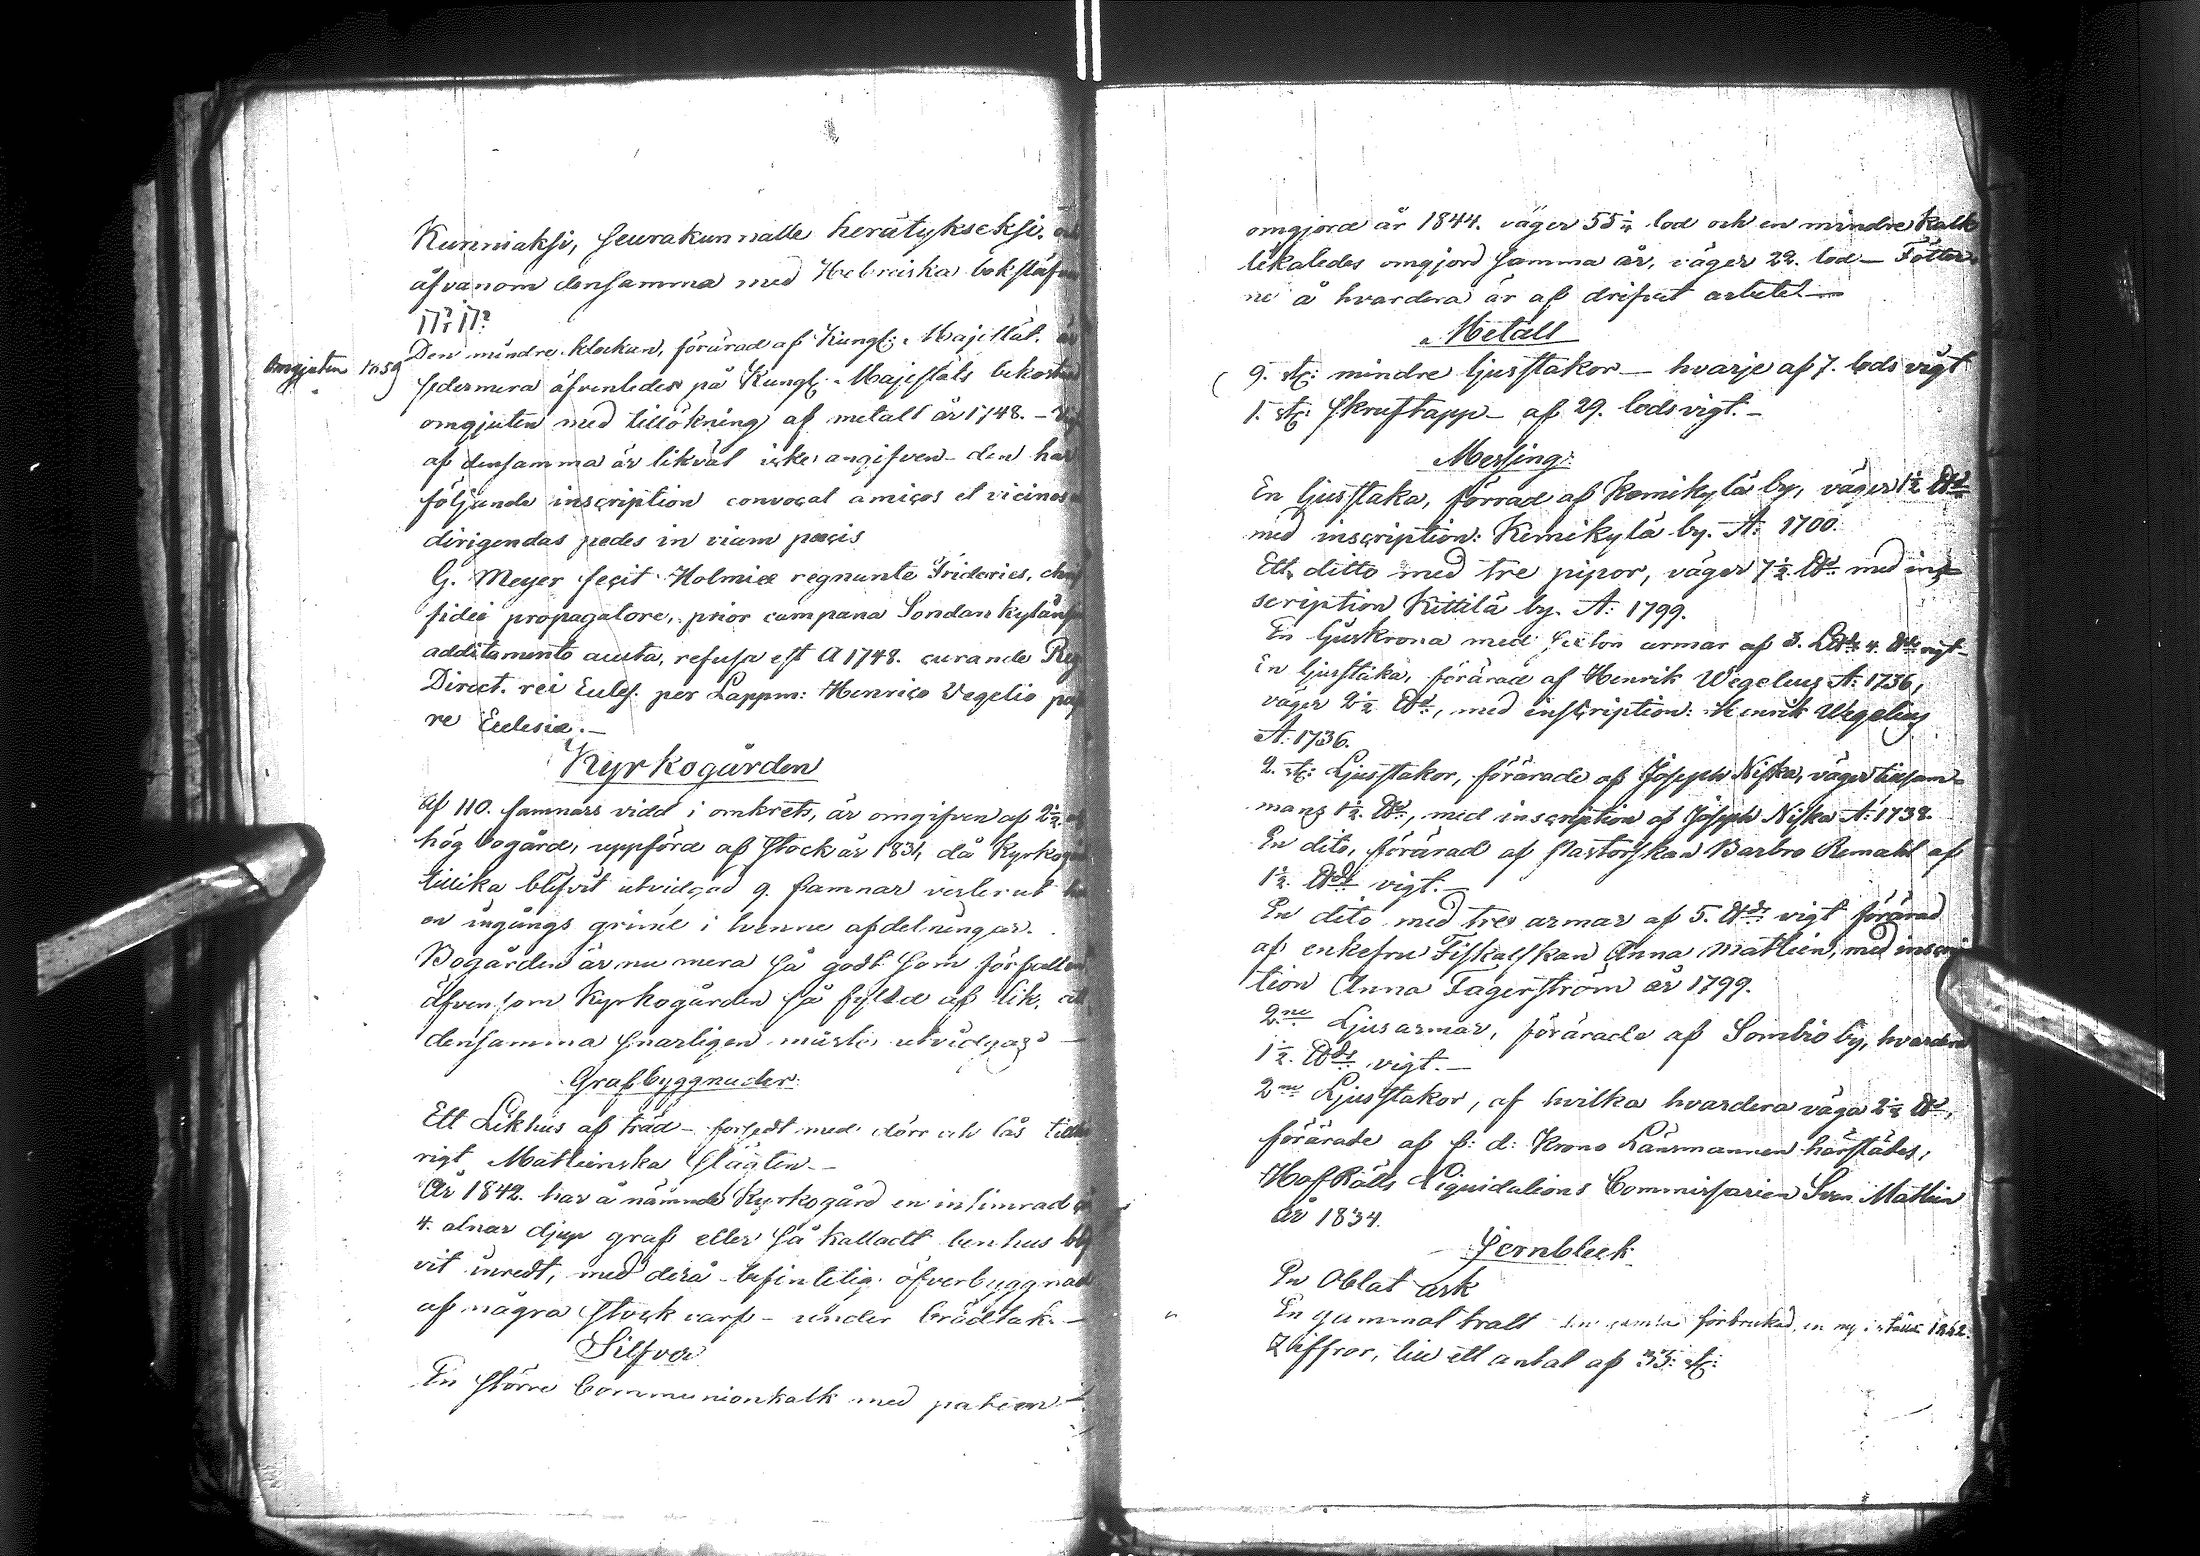 Kunniaksi, seurakunnalle herätykseksi. och
åfvanom densamma med Hebreiska bokstäf
יהוה
Den mindre klockan, förärad af Kungl: Majestät. är
Omgjuten 1859
sedermera äfvenledes på Kungl: Majestäts bekostnad
omgjuten med tillökning af metall år 1748. –
af densamma är likväl icke angifven – den har
följande inscription convocat amicos et vicinos
dirigendas pedes in viam pacis
G. Meyer fecit Holmiæ regnante Friderico,
fidei propagatore, prior campana Sodankylän
additamento aucta, refusa est A 1748. curande Reg
Direct. rei Eccles. per Lappm: Henrico Vegelio pas
re Eclesiæ. –
Kyrkogården
af 110. famnars vidd i omkrets, är omgifven af 2 1/2
hög bogård, uppförd af stock år 1831, då Kyrkog
tillika blifvit utvidgad 9. famnar vesterut
en ingångs grind i henne afdelningar.
Bogården är nu mera så godt som förfallen
äfvensom Kyrkogården så fylld af lik, att
densamma snarligen måste utvidgas –
Grafbyggnader:
Ett Likhus af träd – försedt med dörr och lås tillhö
rigt Matleinska slägten –
År 1842. har å nämnde Kyrkogård en intimrad
4. alnar djup graf eller så kalladt benhus blif
vit inredt, med derå befintelig öfverbyggnad
af några stock varf – under brädtak. –
Silfver
En större Communionkalk med paten –
omgjord år 1844. väger 55 1/4 lod och en mindre Kalk
likaledes omgjord samma år, väger 22. lod – Fötter
ne å hvardera är af drifvet arbete –
Metall
9. st: mindre ljusstakor – hvarje af 7. lods vigt
1. st: skruftapp – af 29. lods vigt. –
Messing:
En ljusstaka, förrad af Kemikylä by, väger 1 1/2 ℔
med inscription: Kemikylä by. A: 1700.
Ett ditto med tre pipor, väger 7 1/2 ℔ med in
scription Kittilä by. A: 1799.
En ljuskrona med sexton armar af 3. L℔ 4. ℔ vigt –
En ljusstaka, förärad af Henrik Wegelius A: 1736,
väger 2 1/2 ℔, med inscription: Henrik Wegelius
A: 1736.
2. st: Ljusstakor, förärade af Joseph Niska, väger tillsam-
mans 1 1/2. ℔, med inscription af Joseph Niska A: 1738.
En dito, förärad af Pastorskan Barbro Remahl af
1 1/2. ℔ vigt. –
En dito med tre armar af 5. ℔ vigt förärad
af enkefru Fiskalskan Anna Matlein, med inscrip
tion Anna Fagerström år 1799.
2ne Ljusarmar, förärade af Sombio by, hvardera
1 1/2. ℔ vigt. –
2ne Ljusstakor, af hvilka hvardera väga 2 1/2 ℔,
förärade af f: d: Krono Länsmannen härstädes,
HofRätts Liquidations Commissarien Sven Matlein
år 1834.
Jernbleck
En Oblat ask
En gammal tratt den gamla förbrukad, en ny i stället 1852.
Ziffror, till ett antal af 33: st: